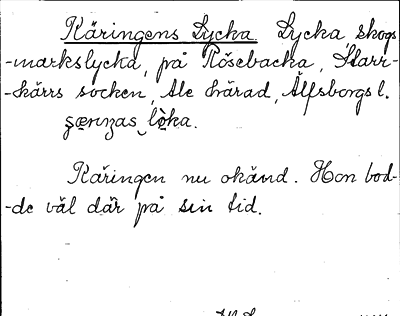 Käringens Lycka. Lycka skogs
-markslycka, på Rösebacka, Starr-
-kärrs socken, Ale härad, Älfsborgs l.
Käringen nu okänd. Hon bod-
-de väl där på sin tid.